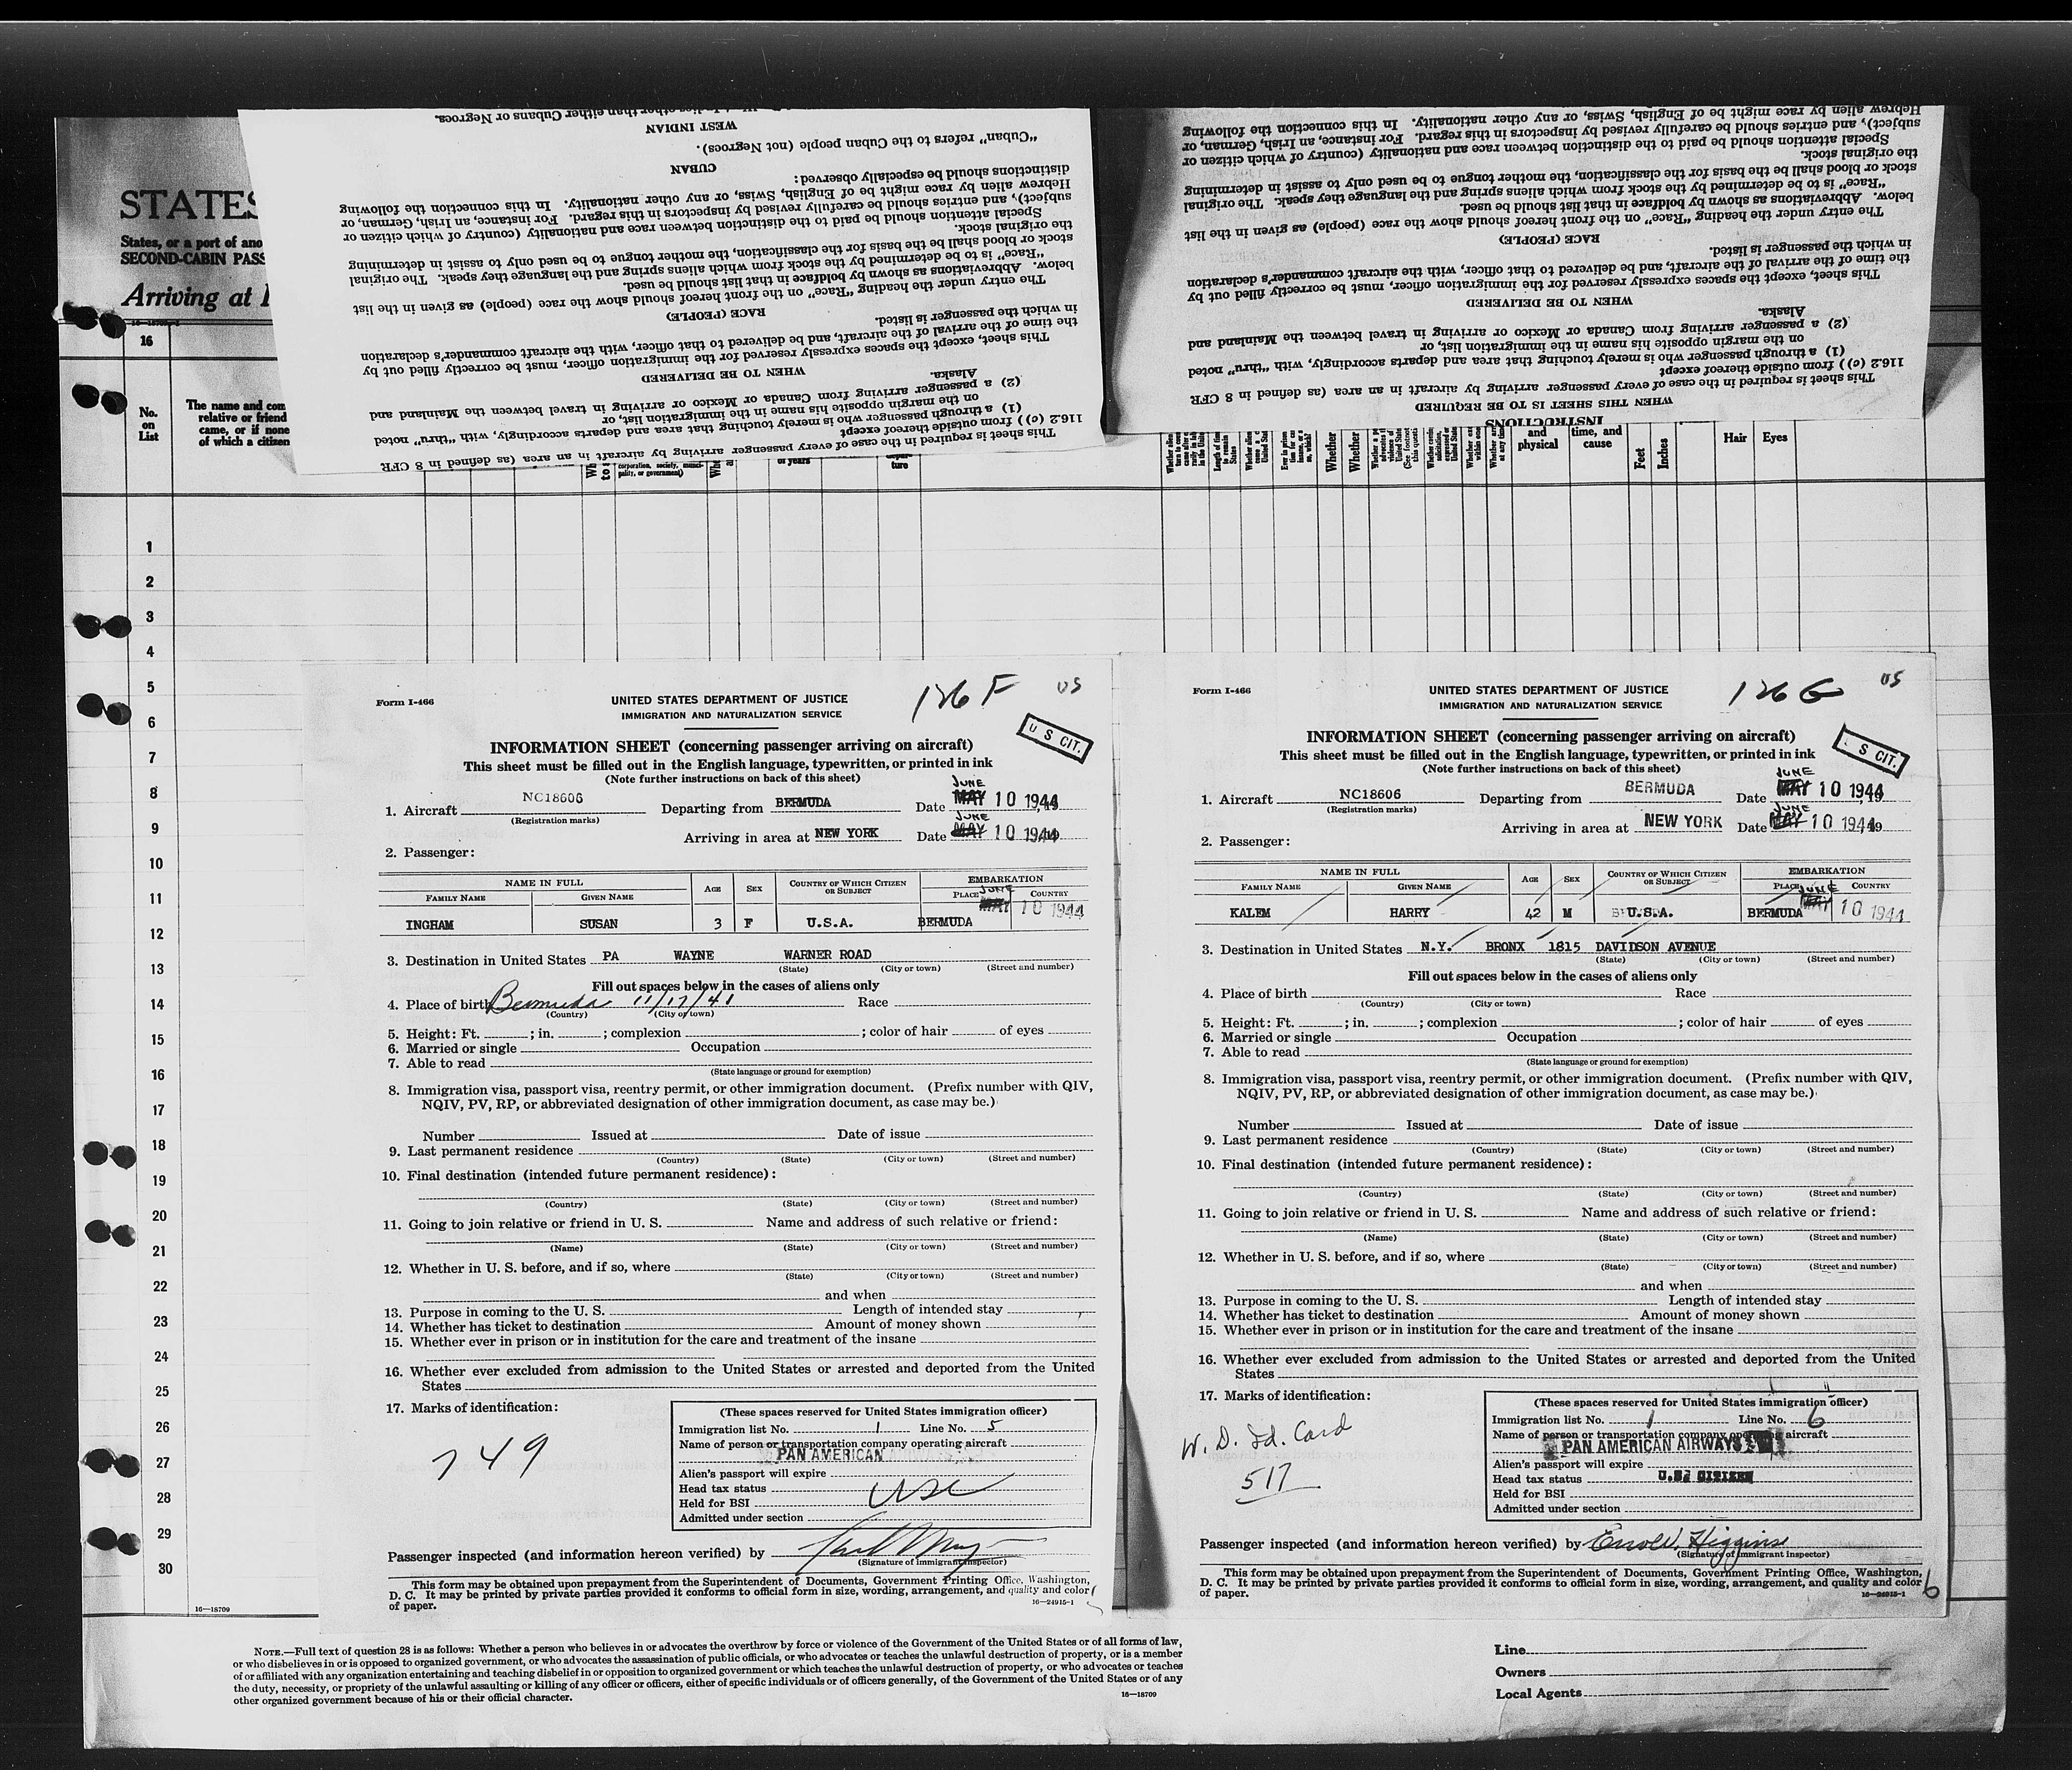 West Indies other than either Cubans or Negroes.
WEST INDIAN
"Cuban" refers to the Cuban people (not Negroes).
CUBAN
distinctions should be especially observed:
Hebrew alien by race might be of English, Swiss, or any other nationality. In this connection the following
subject), and entries should be carefully revised by inspectors in this regard. For instance, an Irish, German, or
Special attention should be paid to the distinction between race and nationality (country of which citizen or
the original stock.
stock or blood shall be the basis for the classification, the mother tongue to be used only to assist in determining
"Race" is to be determined by the stock from which aliens spring and the language they speak. The original
below. Abbreviations as shown by boldface in that list should be used.
The entry under the heading "Race" on the front hereof should show the race (people) as given in the list
RACE (PEOPLE)
in which the passenger is listed.
the time of the arrival of the aircraft, and be delivered to that officer, with the aircraft commander's declaration
This sheet, except the spaces expressly reserved for the immigration officer, must be correctly filled out by
WHEN TO BE DELIVERED
Alaska.
(2) a passenger arriving from Canada or Mexico or arriving in travel between the Mainland and
on the margin opposite his name in the immigration list, or
(1) a through passenger who is merely touching that area and departs accordingly, with "thru" noted
116.2 (c)) from outside thereof except
This sheet is required in the case of every passenger arriving by aircraft in an area (as defined in 8 CFR
Hebrew alien by race might be of English, Swiss, or any other nationality. In this connection the following
subject), and entries should be carefully revised by inspectors in this regard. For instance, an Irish, German, or
Special attention should be paid to the distinction between race and nationality (country of which citizen or
the original stock.
stock or blood shall be the basis for the classification, the mother tongue to be used only to assist in determining
"Race" is to be determined by the stock from which aliens spring and the language they speak. The original
below. Abbreviations as shown by boldface in that list should be used.
The entry under the heading "Race" on the front hereof should show the race (people) as given in the list
RACE (PEOPLE)
in which the passenger is listed.
the time of the arrival of the aircraft, and be delivered to that officer, with the aircraft commander's declaration
This sheet, except the spaces expressly reserved for the immigration officer, must be correctly filled out by
WHEN TO BE DELIVERED
Alaska.
(2) a passenger arriving from Canada or Mexico or arriving in travel between the Mainland and
on the margin opposite his name in the immigration list, or
(1) a through passenger who is merely touching that area and departs accordingly, with "thru" noted
116.2 (c)) from outside thereof except
This sheet is required in the case of every passenger arriving by aircraft in an area (as defined in 8 CFR
WHEN THIS SHEET IS TO BE REQUIRED
INSTRUCTIONS
STATES
States, or a port of ano
SECOND-CABIN PASS
Arriving at
16
No. on List
The name and com
relative or friend
came, or if none
of which a citizen
corporation, society, munici-
pality, or government)
or years
ture
Whether
Whether
and physical
time, and cause
Feet
Inches
Hair
Eyes
1
2
3
4
5
6
7
8
9
10
11
12
13
14
15
16
17
18
19
20
21
22
23
24
25
26
27
28
29
30
16—18709
Form I-466
126 F
US
UNITED STATES DEPARTMENT OF JUSTICE
IMMIGRATION AND NATURALIZATION SERVICE
U S CIT.
INFORMATION SHEET (concerning passenger arriving on aircraft)
This sheet must be filled out in the English language, typewritten, or printed in ink
(Note further instructions on back of this sheet)
JUNE
1. Aircraft NC18606 Departing from BERMUDA Date MAY 10 1944
(Registration marks)
JUNE
Arriving in area at NEW YORK Date MAY 10 1944
2. Passenger:
NAME IN FULL AGE SEX COUNTRY OF WHICH CITIZEN OR SUBJECT EMBARKATION
FAMILY NAME GIVEN NAME PLACE COUNTRY
JUNE
MAY 10 1944
INGHAM SUSAN 3 F U.S.A. BERMUDA
3. Destination in United States PA WAYNE WARNER ROAD
(State) (City or town) (Street and number)
Fill out spaces below in the cases of aliens only
4. Place of birth Bermuda 11/17/41 Race
(Country) (City or town)
5. Height: Ft. ; in. ; complexion ; color of hair of eyes
6. Married or single Occupation
7. Able to read
(State language or ground for exemption)
8. Immigration visa, passport visa, reentry permit, or other immigration document. (Prefix number with QIV,
NQIV, PV, RP, or abbreviated designation of other immigration document, as case may be.)
Number Issued at Date of issue
9. Last permanent residence
(Country) (State) (City or town) (Street and number)
10. Final destination (intended future permanent residence):
(Country) (State) (City or town) (Street and number)
11. Going to join relative or friend in U. S. Name and address of such relative or friend:
(Name) (State) (City or town) (Street and number)
12. Whether in U. S. before, and if so, where
(State) (City or town) (Street and number)
and when
13. Purpose in coming to the U. S. Length of intended stay
14. Whether has ticket to destination Amount of money shown
15. Whether ever in prison or in institution for the care and treatment of the insane
16. Whether ever excluded from admission to the United States or arrested and deported from the United
States
17. Marks of identification:
749
(These spaces reserved for United States immigration officer)
Immigration list No. 1 Line No. 5
Name of person or transportation company operating aircraft
PAN AMERICAN
Alien's passport will expire
Head tax status USC
Held for BSI
Admitted under section
Passenger inspected (and information hereon verified) by
(Signature of immigrant inspector)
This form may be obtained upon prepayment from the Superintendent of Documents, Government Printing Office, Washington,
D. C. It may be printed by private parties provided it conforms to official form in size, wording, arrangement, and quality and color
of paper.
16—24915-1
Form I-466
126 G
US
UNITED STATES DEPARTMENT OF JUSTICE
IMMIGRATION AND NATURALIZATION SERVICE
S CIT.
INFORMATION SHEET (concerning passenger arriving on aircraft)
This sheet must be filled out in the English language, typewritten, or printed in ink
(Note further instructions on back of this sheet)
JUNE
1. Aircraft NC18606 Departing from BERMUDA Date MAY 10 1944
(Registration marks)
JUNE
Arriving in area at NEW YORK Date MAY 10 1944
2. Passenger:
NAME IN FULL AGE SEX COUNTRY OF WHICH CITIZEN OR SUBJECT EMBARKATION
FAMILY NAME GIVEN NAME PLACE COUNTRY
JUNE
MAY 10 1944
KALEM HARRY 42 M U.S.A. BERMUDA
3. Destination in United States N.Y. BRONX 1815 DAVIDSON AVENUE
(State) (City or town) (Street and number)
Fill out spaces below in the cases of aliens only
4. Place of birth Race
(Country) (City or town)
5. Height: Ft. ; in. ; complexion ; color of hair of eyes
6. Married or single Occupation
7. Able to read
(State language or ground for exemption)
8. Immigration visa, passport visa, reentry permit, or other immigration document. (Prefix number with QIV,
NQIV, PV, RP, or abbreviated designation of other immigration document, as case may be.)
Number Issued at Date of issue
9. Last permanent residence
(Country) (State) (City or town) (Street and number)
10. Final destination (intended future permanent residence):
(Country) (State) (City or town) (Street and number)
11. Going to join relative or friend in U. S. Name and address of such relative or friend:
(Name) (State) (City or town) (Street and number)
12. Whether in U. S. before, and if so, where
(State) (City or town) (Street and number)
and when
13. Purpose in coming to the U. S. Length of intended stay
14. Whether has ticket to destination Amount of money shown
15. Whether ever in prison or in institution for the care and treatment of the insane
16. Whether ever excluded from admission to the United States or arrested and deported from the United
States
17. Marks of identification:
W. D. Id. Card
517
(These spaces reserved for United States immigration officer)
Immigration list No. 1 Line No. 6
Name of person or transportation company operating aircraft
PAN AMERICAN AIRWAYS
Alien's passport will expire
Head tax status U.S. CITIZEN
Held for BSI
Admitted under section
Passenger inspected (and information hereon verified) by Errold Higgins
(Signature of immigrant inspector)
This form may be obtained upon prepayment from the Superintendent of Documents, Government Printing Office, Washington,
D. C. It may be printed by private parties provided it conforms to official form in size, wording, arrangement, and quality and color
of paper.
16—24915-1
6
NOTE.—Full text of question 28 is as follows: Whether a person who believes in or advocates the overthrow by force or violence of the Government of the United States or of all forms of law,
or who disbelieves in or is opposed to organized government, or who advocates the assassination of public officials, or who advocates or teaches the unlawful destruction of property, or is a member
of or affiliated with any organization entertaining and teaching disbelief in or opposition to organized government or which teaches the unlawful destruction of property, or who advocates or teaches
the duty, necessity, or propriety of the unlawful assaulting or killing of any officer or officers, either of specific individuals or of officers generally, of the Government of the United States or of any
other organized government because of his or their official character.
16—18709
Line
Owners
Local Agents